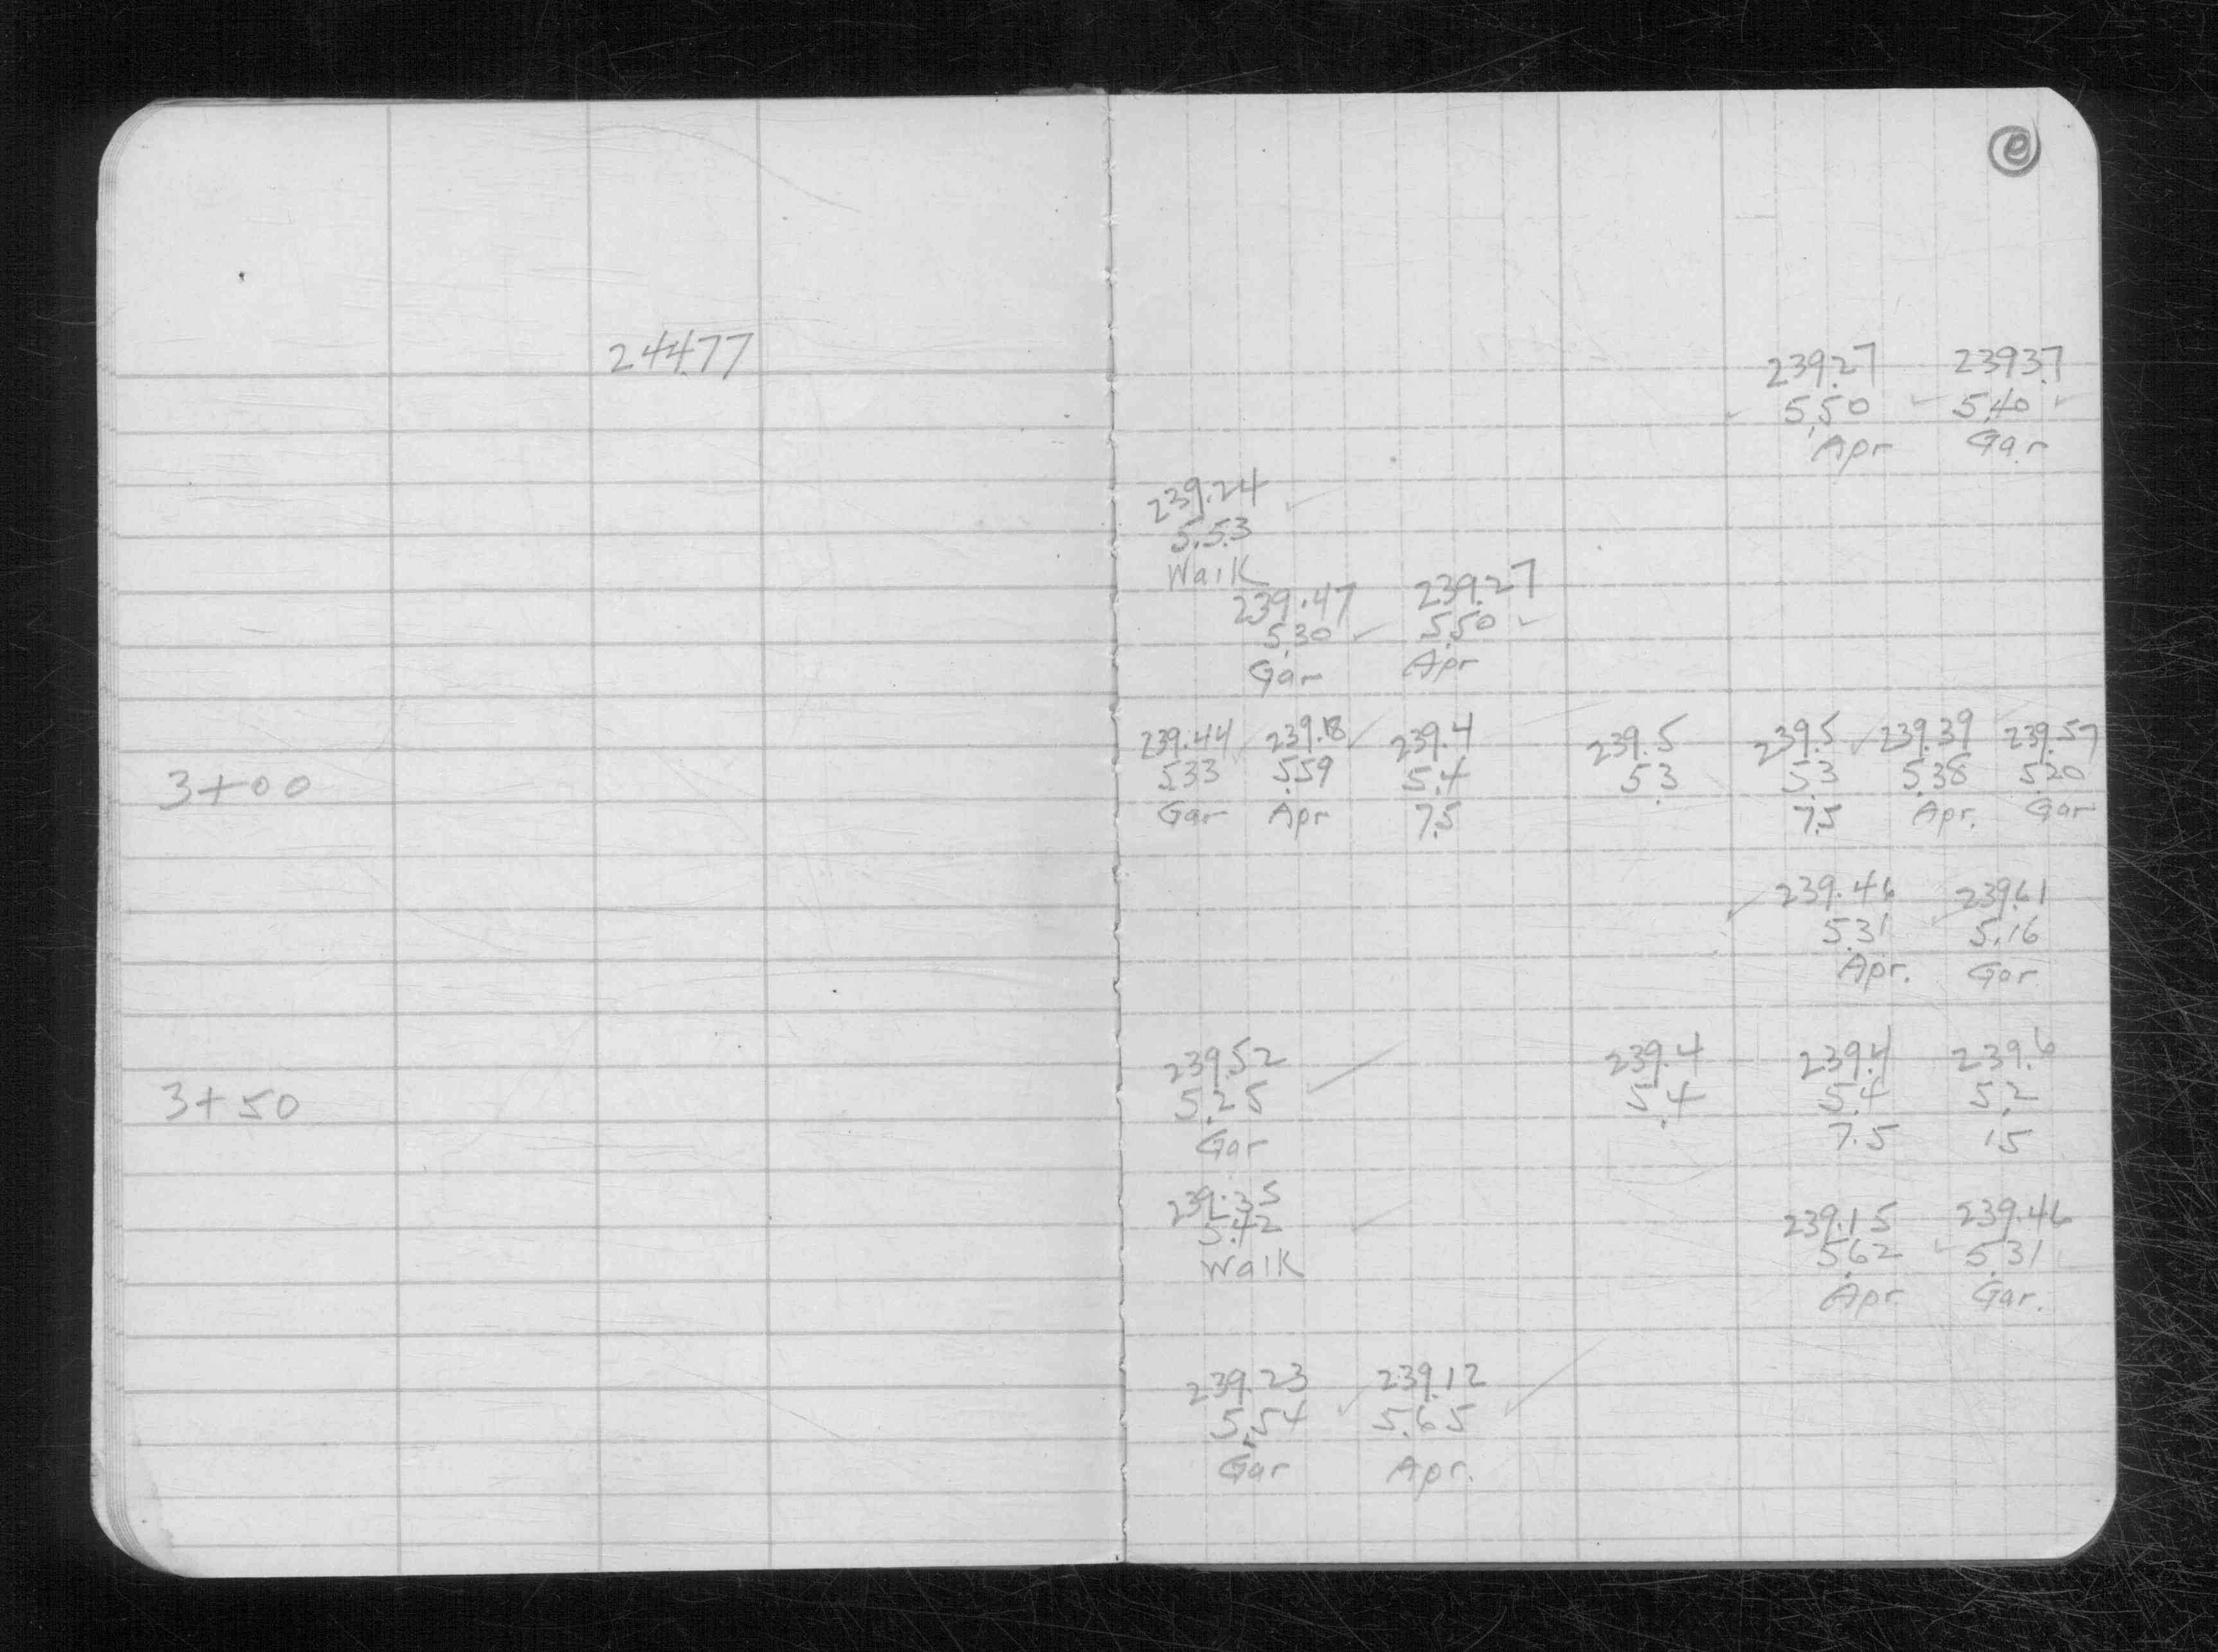 244.77
239.27 239.37
5.50 5.40
Apr Gar
239.24
5.53
Walk
239.47 239.27
5.30 5.50
Gar Apr
3+00
239.44 239.18 239.4 239.5 239.5 239.39 239.57
5.33 5.59 5.4 5.3 5.3 5.38 5.20
Gar Apr 7.5 7.5 Apr. Gar
239.46 239.61
5.31 5.16
Apr. Gar
3+50
239.52 239.4 239.4 239.6
5.25 5.4 5.4 5.2
Gar 7.5 15
239.35
5.42
Walk
239.15 239.46
5.62 5.31
Apr Gar.
239.23 239.12
5.54 5.65
Gar Apr.